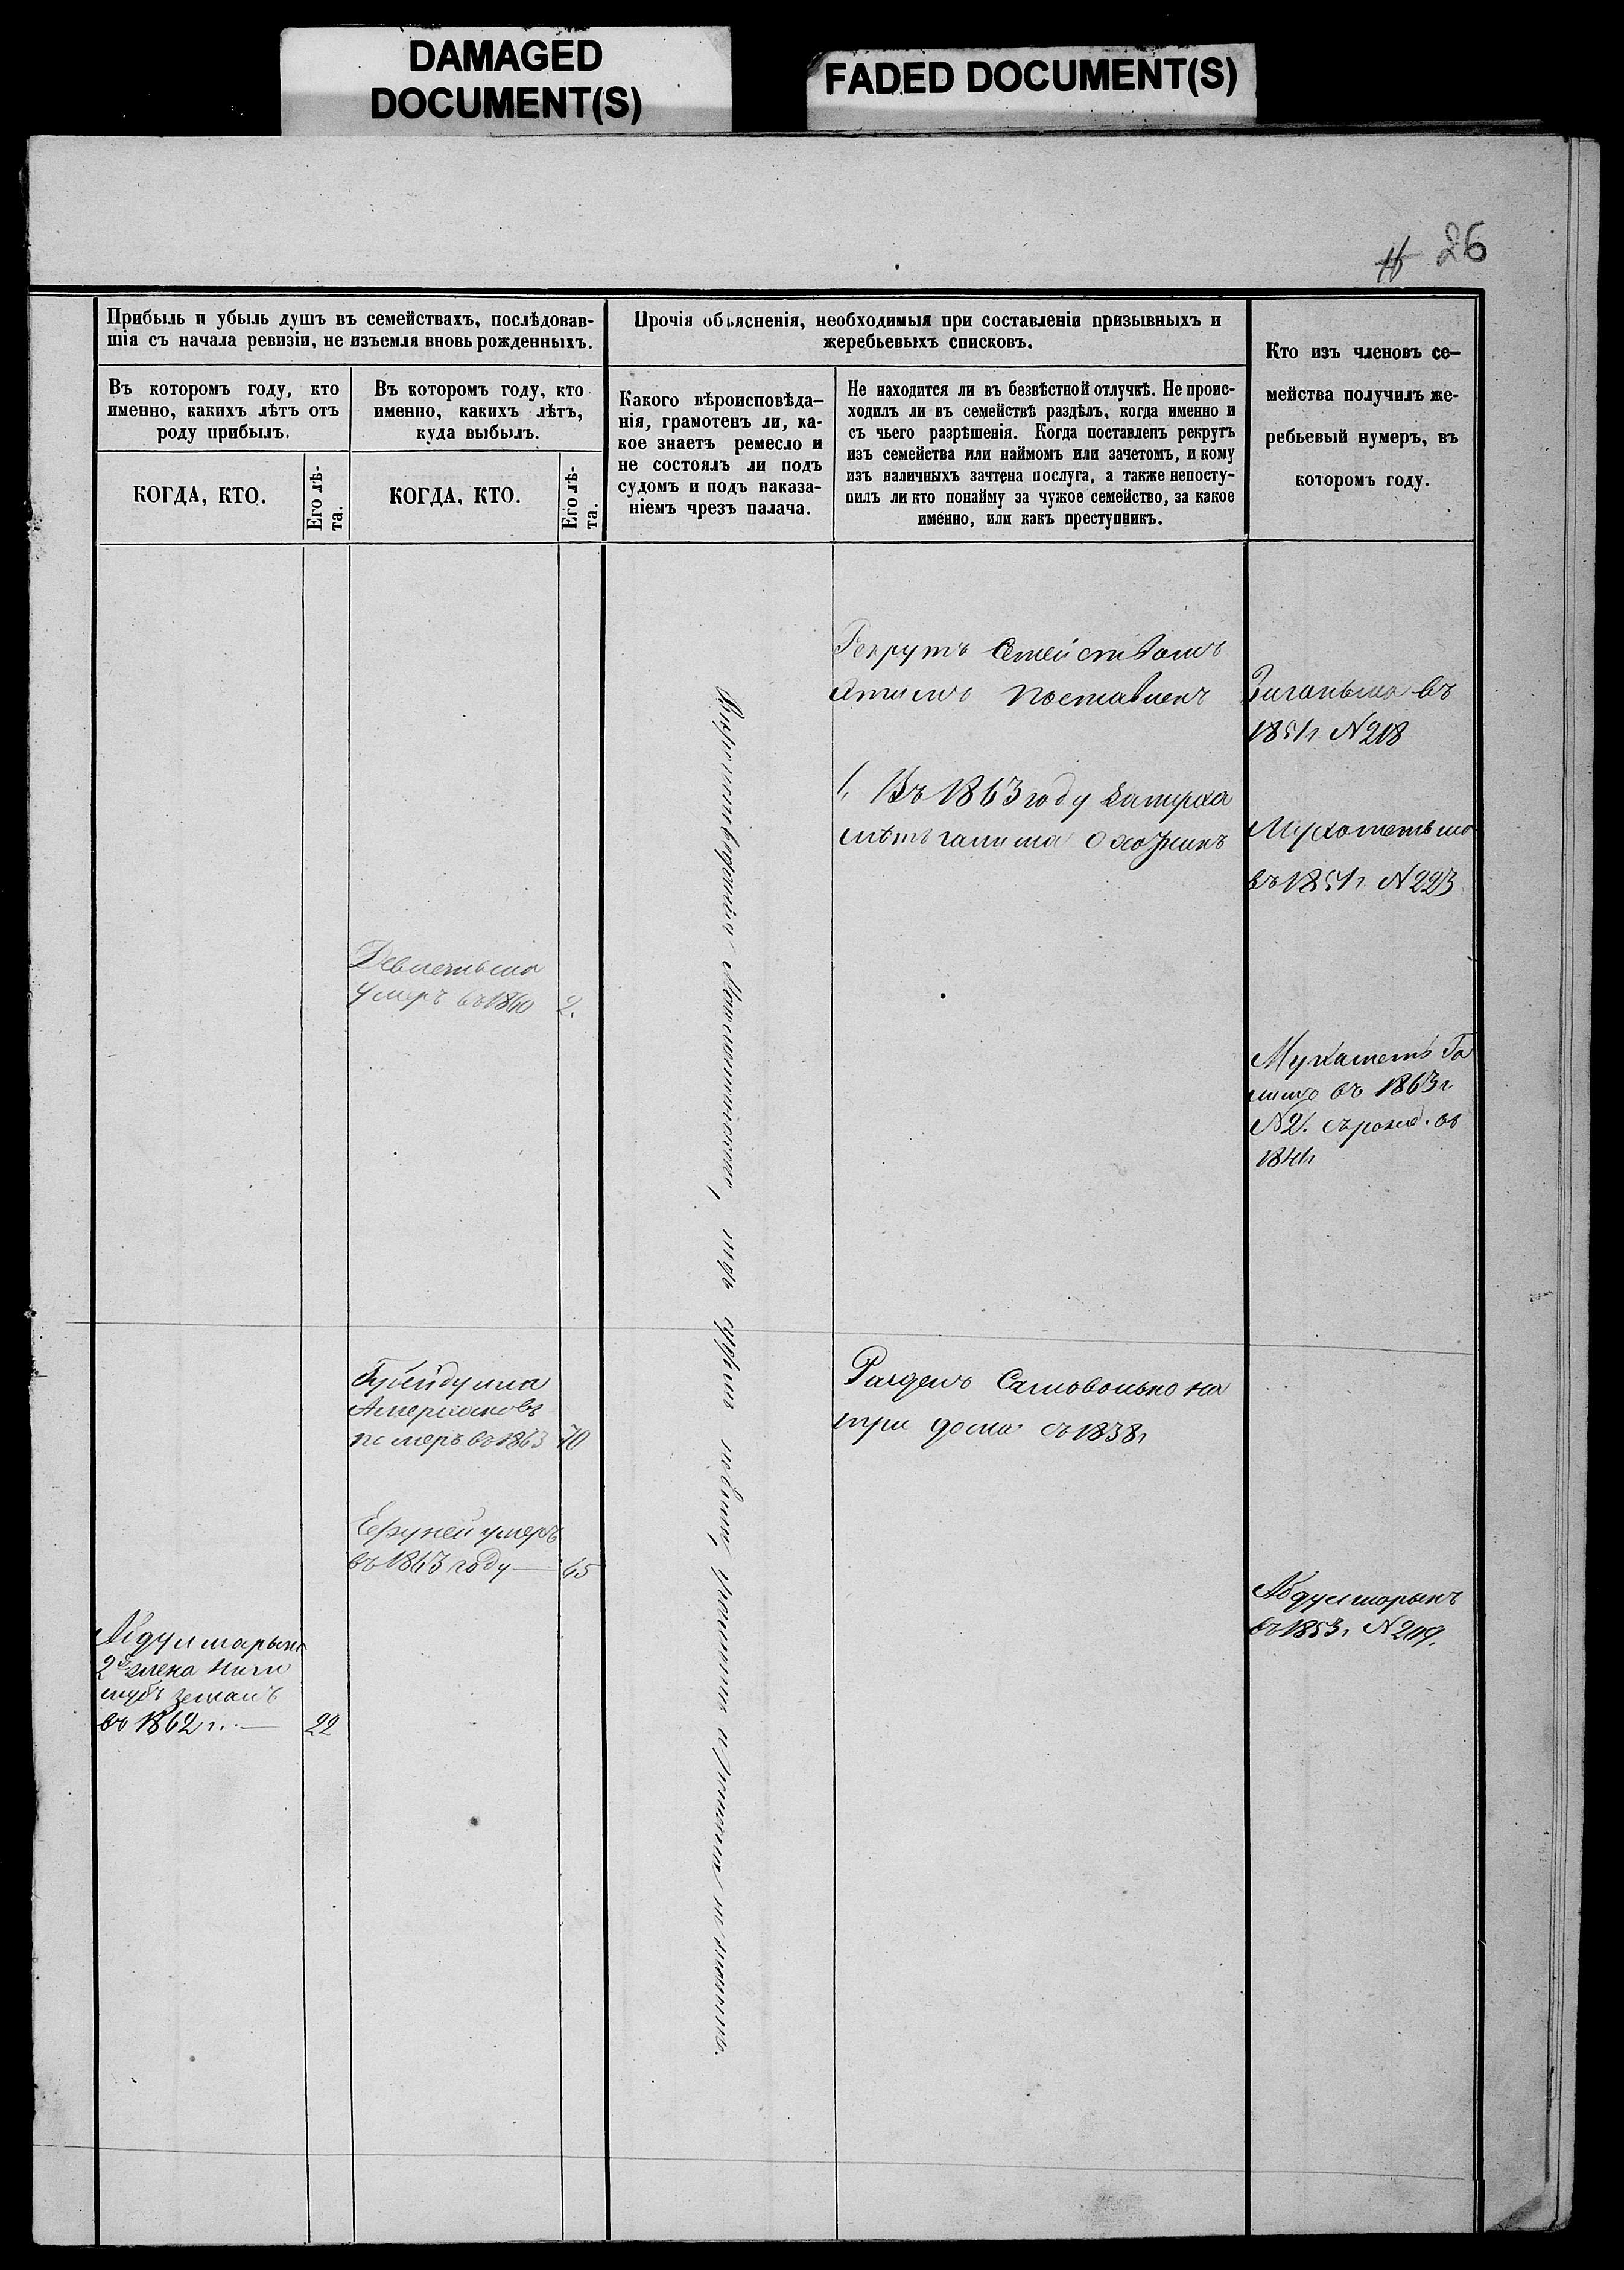 DAMAGED
DOCUMENT(S)
FADED DOCUMENT(S)
26
Прибыль и убыль душъ въ семействахъ, послѣдовав-
шія съ начала ревизіи, не изъемля вновь рожденныхъ.
Въ которомъ году, кто
именно, какихъ лѣтъ отъ
роду прибылъ.
КОГДА, КТО.
Его лѣ-
та.
Въ которомъ году, кто
именно, какихъ лѣтъ,
куда выбылъ.
КОГДА, КТО.
Его лѣ-
та.
Прочія объясненія, необходимыя при составленіи призывныхъ и
жеребьевыхъ списковъ.
Какого вѣроисповѣда-
нія, грамотенъ ли, ка-
кое знаетъ ремесло и
не состоялъ ли подъ
судомъ и подъ наказа-
ніемъ чрезъ палача.
Не находится ли въ безвѣстной отлучкѣ. Не проис-
ходилъ ли въ семействѣ раздѣлъ, когда именно и
съ чьего разрѣшенія. Когда поставленъ рекрутъ
изъ семейства или наймомъ или зачетомъ, и кому
изъ наличныхъ зачтена послуга, а также непосту-
пилъ ли кто понайму за чужое семейство, за какое
именно, или какъ преступникъ.
Кто изъ членовъ се-
мейства получилъ же-
ребьевый нумеръ, въ
которомъ году.
Рекрутъ Семействомъ
этимъ поставленъ
1. Въ 1863 году
охотникъ
Зиганьша въ
1851г. N 218
Мухаметьша
въ 1851г. N 223
Девлетьша
умеръ въ 1860 2.
Мухаметъ Га
въ 1863г.
N 2. съ рожд. въ
1841г
Вероисповеданія Магометанскаго, подъ судомъ небыли, грамоты и
70
въ 1863
умеръ
въ 1863 году — 65
Разделъ Самовольно на
три дома съ 1838г
Абдулшарыпъ
въ 1853г. N 209.
Абдулшарыпа
2я жена
въ 1862г. — 22